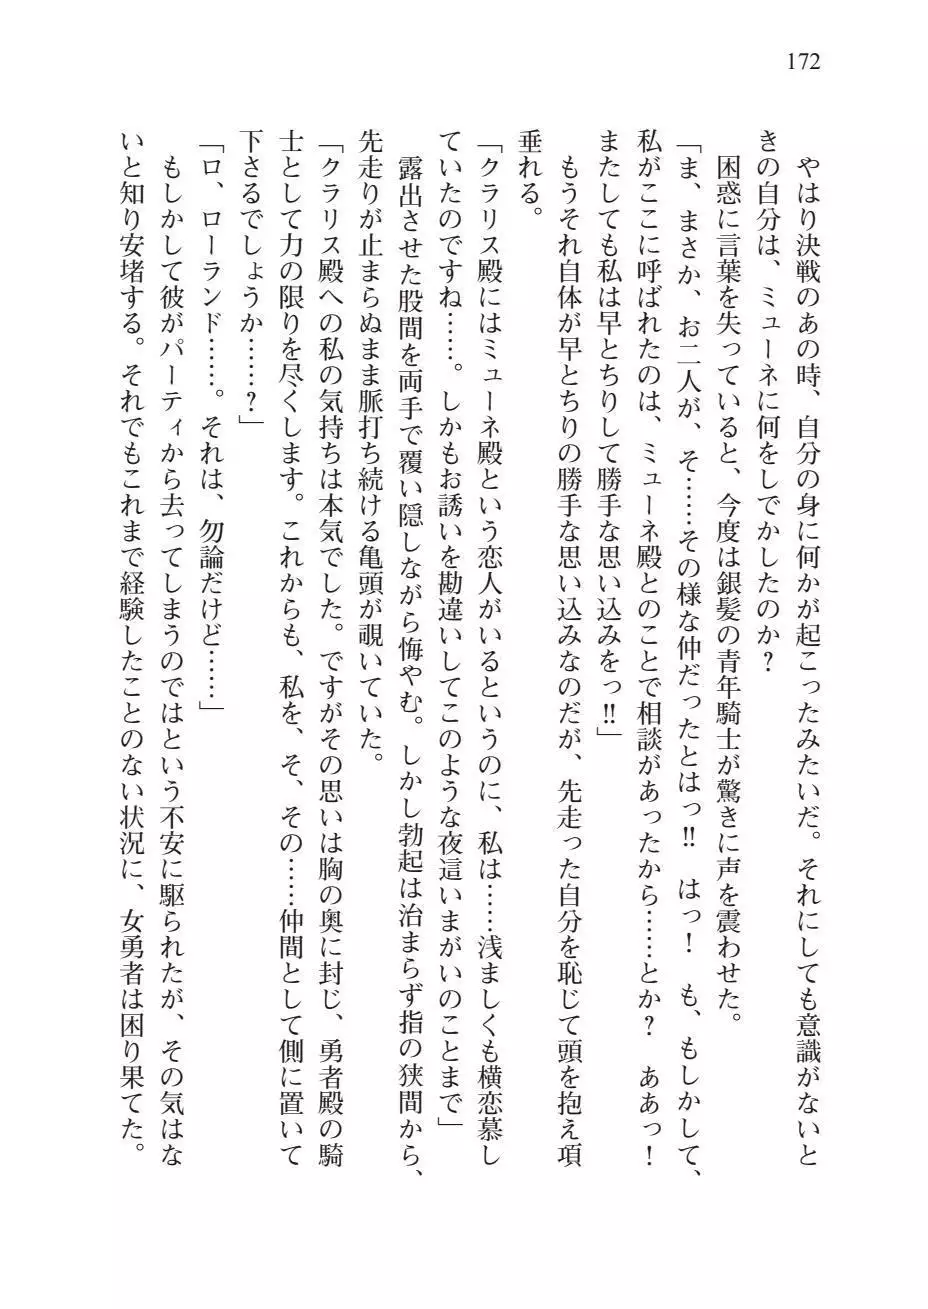 172
　やはり決戦のあの時、自分の身に何かが起こったみたいだ。それにしても意識がないと
きの自分は、ミューネに何をしでかしたのか？
　困惑に言葉を失っていると、今度は銀髪の青年騎士が驚きに声を震わせた。
「ま、まさか、お二人が、そ……その様な仲だったとはっ‼　はっ！　も、もしかして、
私がここに呼ばれたのは、ミューネ殿とのことで相談があったから……とか？　ああっ！
またしても私は早とちりして勝手な思い込みをっ‼」
　もうそれ自体が早とちりの勝手な思い込みなのだが、先走った自分を恥じて頭を抱え項
垂れる。
「クラリス殿にはミューネ殿という恋人がいるというのに、私は……浅ましくも横恋慕し
ていたのですね……。しかもお誘いを勘違いしてこのような夜這いまがいのことまで」
　露出させた股間を両手で覆い隠しながら悔やむ。しかし勃起は治まらず指の狭間から、
先走りが止まらぬまま脈打ち続ける亀頭が覗いていた。
「クラリス殿への私の気持ちは本気でした。ですがその思いは胸の奥に封じ、勇者殿の騎
士として力の限りを尽くします。これからも、私を、そ、その……仲間として側に置いて
下さるでしょうか……？」
「ロ、ローランド……。それは、勿論だけど……」
　もしかして彼がパーティから去ってしまうのではという不安に駆られたが、その気はな
いと知り安堵する。それでもこれまで経験したことのない状況に、女勇者は困り果てた。